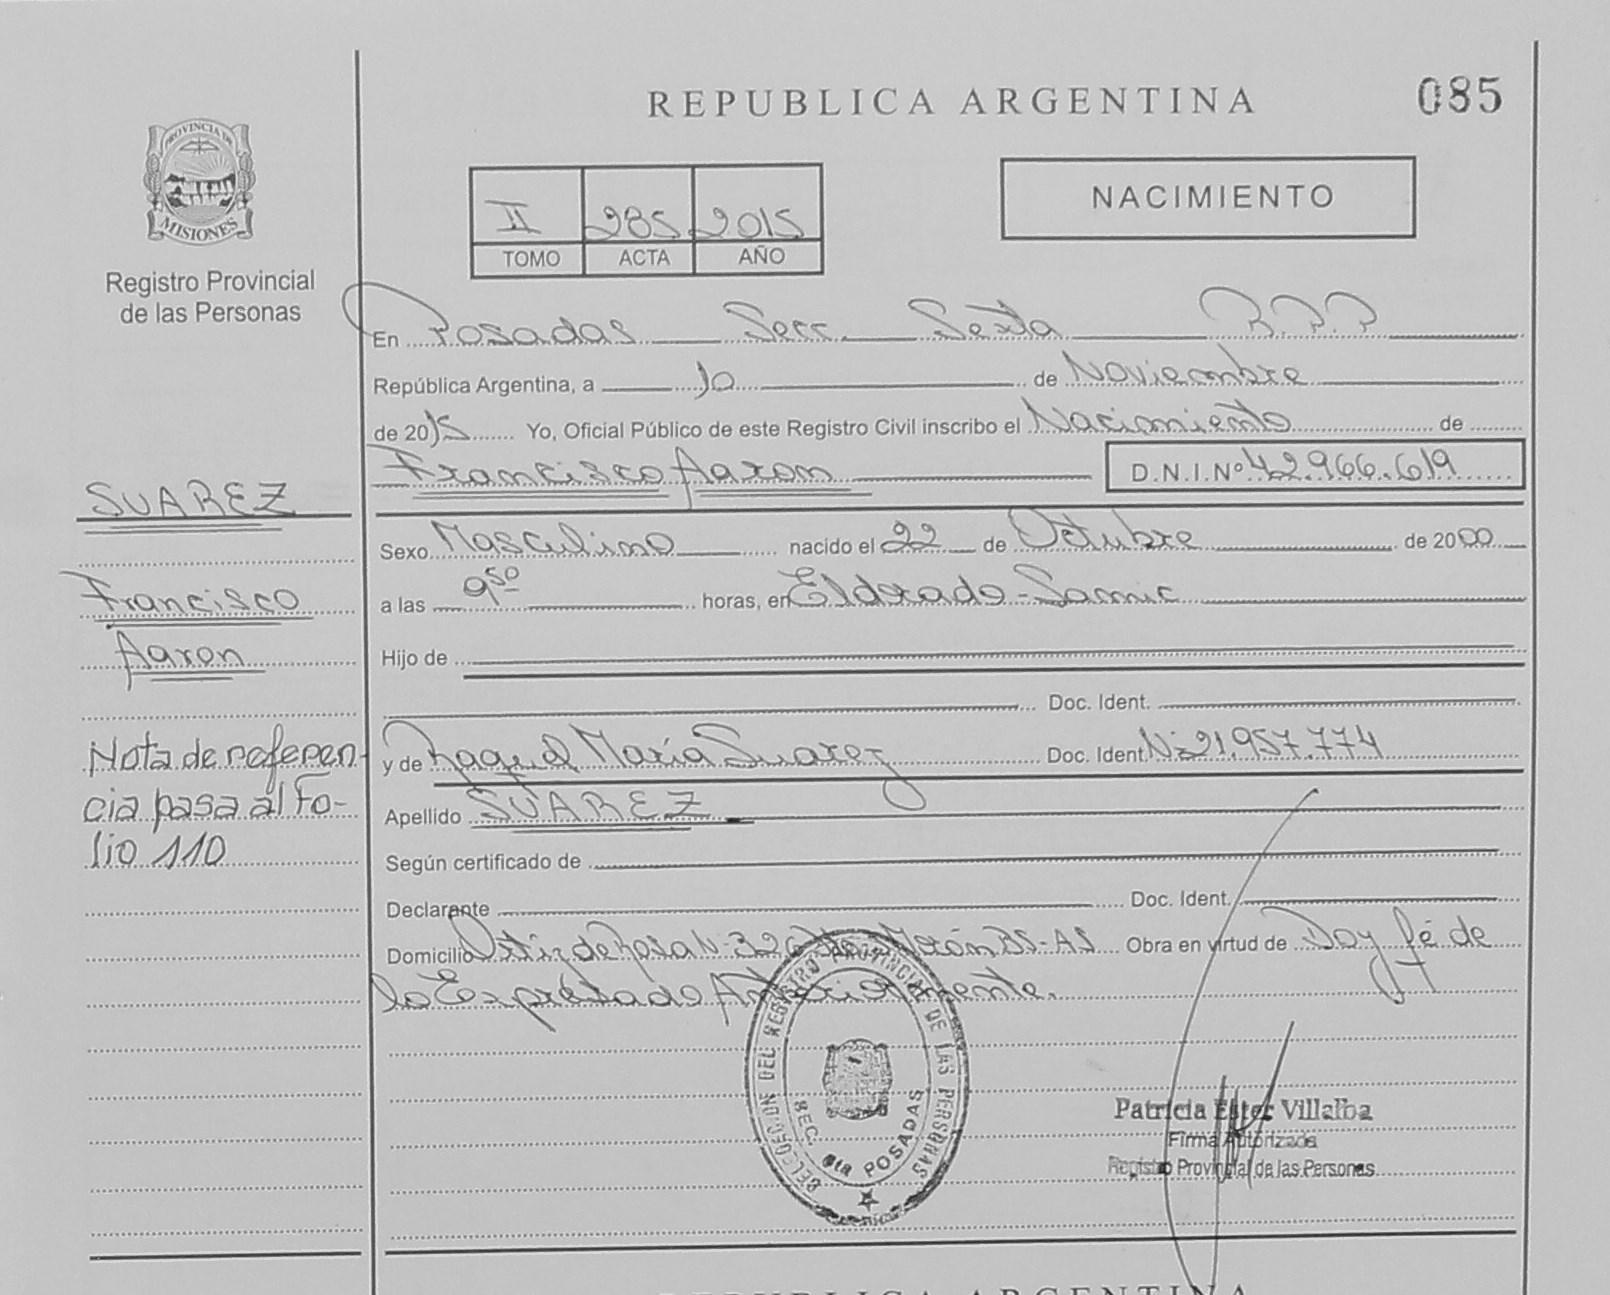 REPUBLICA ARGENTINA
085
PROVINCIA DE
MISIONES
Registro Provincial
de las Personas
II 285 2015
TOMO ACTA AÑO
NACIMIENTO
En Posadas Secc. Sexta R.P.P
República Argentina, a 10 de Noviembre
de 2015 Yo, Oficial Público de este Registro Civil inscribo el Nacimiento de
Francisco Aaron D.N.I.Nº 42.966.619
SUAREZ
Francisco
Aaron
Nota de referen-
cia pasa al Fo-
lio 110
Sexo Masculino nacido el 22 de Octubre de 2000
a las 9⁵⁰ horas, en Eldorado - Samic
Hijo de
Doc. Ident.
y de Raquel María Suarez Doc. Ident. Nº 21.957.774
Apellido SUAREZ
Según certificado de
Declarante Doc. Ident.
Domicilio Ortiz de Rosa Nº 32 Morón BS-AS Obra en virtud de Doy fé de
lo Expresado Anteriormente.
DELEGACION DEL REGISTRO PROVINCIAL DE LAS PERSONAS
SEC. 6ta POSADAS
Patricia Ester Villalba
Firma Autorizada
Registro Provincial de las Personas
REPUBLICA ARGENTINA